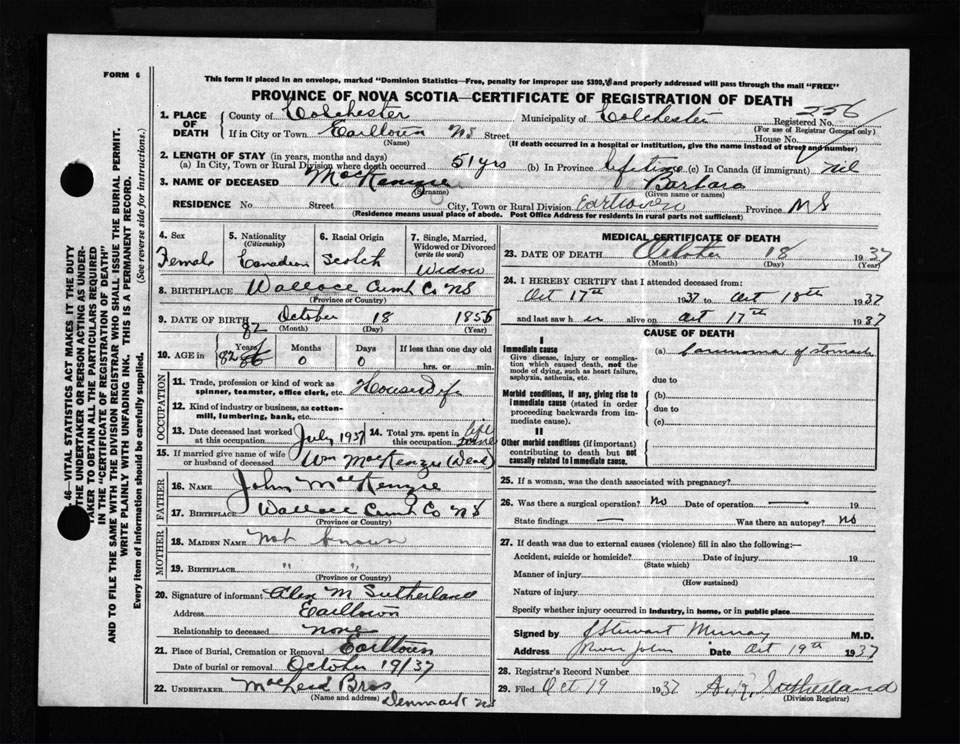 FORM 6
This form if placed in an envelope, marked "Dominion Statistics—Free, penalty for improper use $300," and properly addressed will pass through the mail "FREE"
PROVINCE OF NOVA SCOTIA—CERTIFICATE OF REGISTRATION OF DEATH
1. PLACE OF DEATH County of Colchester Municipality of Colchester Registered No. 256
(For use of Registrar General only)
If in City or Town Earltown NS Street House No.
(Name) (If death occurred in a hospital or institution, give the name instead of street and number)
2. LENGTH OF STAY (in years, months and days)
(a) In City, Town or Rural Division where death occurred 51 yrs (b) In Province lifetime (c) In Canada (if immigrant) nil
3. NAME OF DECEASED MacKenzie Barbara
(Surname) (Given name or names)
RESIDENCE No. Street City, Town or Rural Division Earltown Province NS
(Residence means usual place of abode. Post Office Address for residents in rural parts not sufficient)
4. Sex Female
5. Nationality (Citizenship) Canadian
6. Racial Origin Scotch
7. Single, Married, Widowed or Divorced (write the word) Widow
8. BIRTHPLACE Wallace Cumb Co NS
(Province or Country)
9. DATE OF BIRTH October 18 1855
(Month) (Day) (Year)
82
10. AGE in Years Months Days If less than one day old
82 0 0 hrs. or min.
OCCUPATION
11. Trade, profession or kind of work as spinner, teamster, office clerk, etc. Housewife
12. Kind of industry or business, as cotton-mill, lumbering, bank, etc.
13. Date deceased last worked at this occupation July 1937 14. Total yrs. spent in this occupation life time
15. If married give name of wife or husband of deceased Wm MacKenzie (Dead)
FATHER
16. NAME John MacKenzie
17. BIRTHPLACE Wallace Cumb Co NS
(Province or Country)
MOTHER
18. MAIDEN NAME not known
19. BIRTHPLACE " "
(Province or Country)
20. Signature of informant Alex M Sutherland
Address Earltown
Relationship to deceased none
21. Place of Burial, Cremation or Removal Earltown
Date of burial or removal October 19/37
22. UNDERTAKER MacLeod Bros
(Name and address) Denmark NS
MEDICAL CERTIFICATE OF DEATH
23. DATE OF DEATH October 18 1937
(Month) (Day) (Year)
24. I HEREBY CERTIFY that I attended deceased from:
Oct 17th 1937 to Oct 18th 1937
and last saw h er alive on Oct 17th 1937
CAUSE OF DEATH
I
Immediate cause
Give disease, injury or complication which caused death, not the mode of dying, such as heart failure, asphyxia, asthenia, etc.
(a) Carcinoma of stomach
due to
Morbid conditions, if any, giving rise to immediate cause (stated in order proceeding backwards from immediate cause).
(b)
due to
(c)
II
Other morbid conditions (if important) contributing to death but not causally related to immediate cause.
25. If a woman, was the death associated with pregnancy?
26. Was there a surgical operation? No Date of operation —
State findings — Was there an autopsy? No
27. If death was due to external causes (violence) fill in also the following:—
Accident, suicide or homicide? Date of injury 19
(State which)
Manner of injury
(How sustained)
Nature of injury
Specify whether injury occurred in industry, in home, or in public place
Signed by J Stewart Murray M.D.
Address River John Date Oct 19th 1937
28. Registrar's Record Number
29. Filed Oct 19 1937 Sutherland
(Division Registrar)
46—VITAL STATISTICS ACT MAKES IT THE DUTY
THE UNDERTAKER OR PERSON ACTING AS UNDER-
TAKER TO OBTAIN ALL THE PARTICULARS REQUIRED
IN THE "CERTIFICATE OF REGISTRATION OF DEATH"
AND TO FILE THE SAME WITH THE DIVISION REGISTRAR WHO SHALL ISSUE THE BURIAL PERMIT.
WRITE PLAINLY WITH UNFADING INK. THIS IS A PERMANENT RECORD.
Every item of information should be carefully supplied. (See reverse side for instructions.)